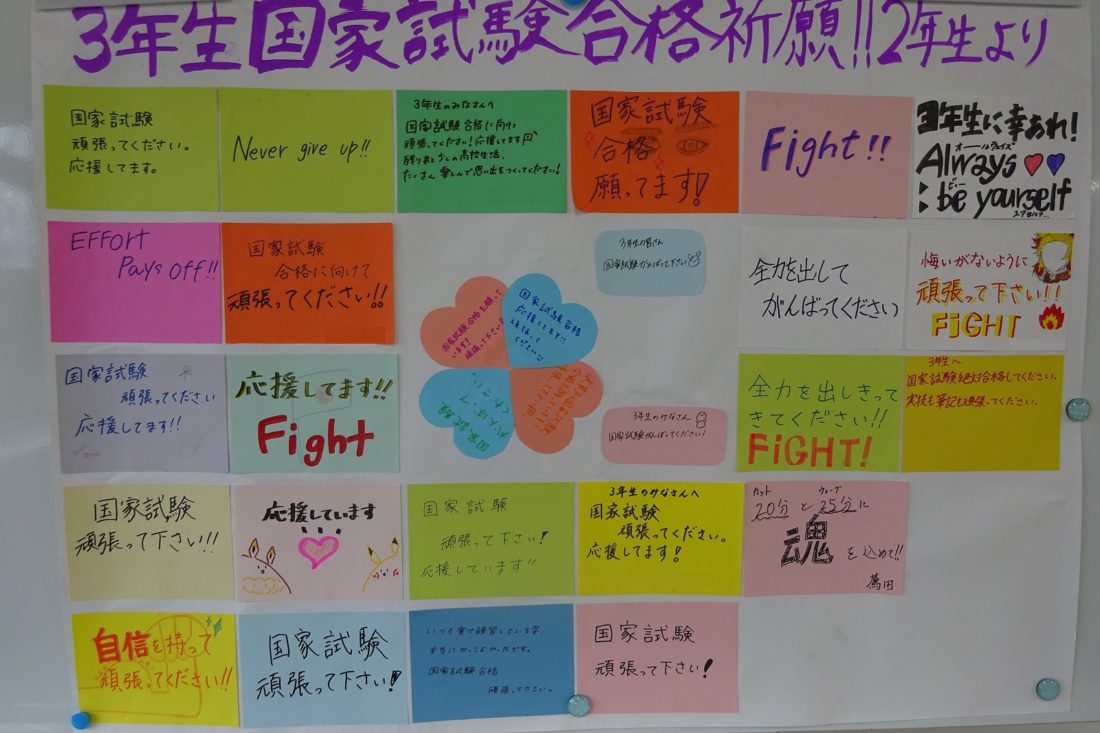 3年生国家試験合格祈願!!2年生より
国家試験
頑張ってください。
応援してます。
Never give up!!
3年生のみなさんへ
国家試験合格に向け
頑張ってください!応援してます
残りあと少しの高校生活、
たくさん楽しんで思い出をつくってください!
国家試験
合格
願ってます!
Fight!!
3年生に幸あれ!
オールウェイズ
Always
ビー
be yourself
EFFORT
Pays off!!
国家試験
合格に向けて
頑張ってください!!
3年生の皆さん
国家試験がんばって下さい
全力を出して
がんばってください
悔いがないように
頑張って下さい!!
FiGHT
国家試験合格を願って
います!
頑張って下さい!
国家試験合格
応援してます!!
頑張って
ください
国家試験
がんばって
ください
国家試験
頑張ってください
応援してます!!
応援してます!!
Fight
3年生のみなさん
国家試験がんばってください!
全力を出しきって
きてください!!
FiGHT!
3年生へ
国家試験絶対合格してください。
実技も筆記も頑張ってください。
国家試験
頑張って下さい!!
応援しています
国家試験
頑張って下さい!
応援しています!!
3年生のみなさんへ
国家試験
頑張ってください。
応援してます!
カット ウェーブ
20分と25分に
魂を込めて!!
萬田
自信を持って
頑張ってください!!
国家試験
頑張って下さい!
いつも実で練習している姿、
本当にかっこよかったです。
国家試験合格
頑張って下さい。
国家試験
頑張って下さい!